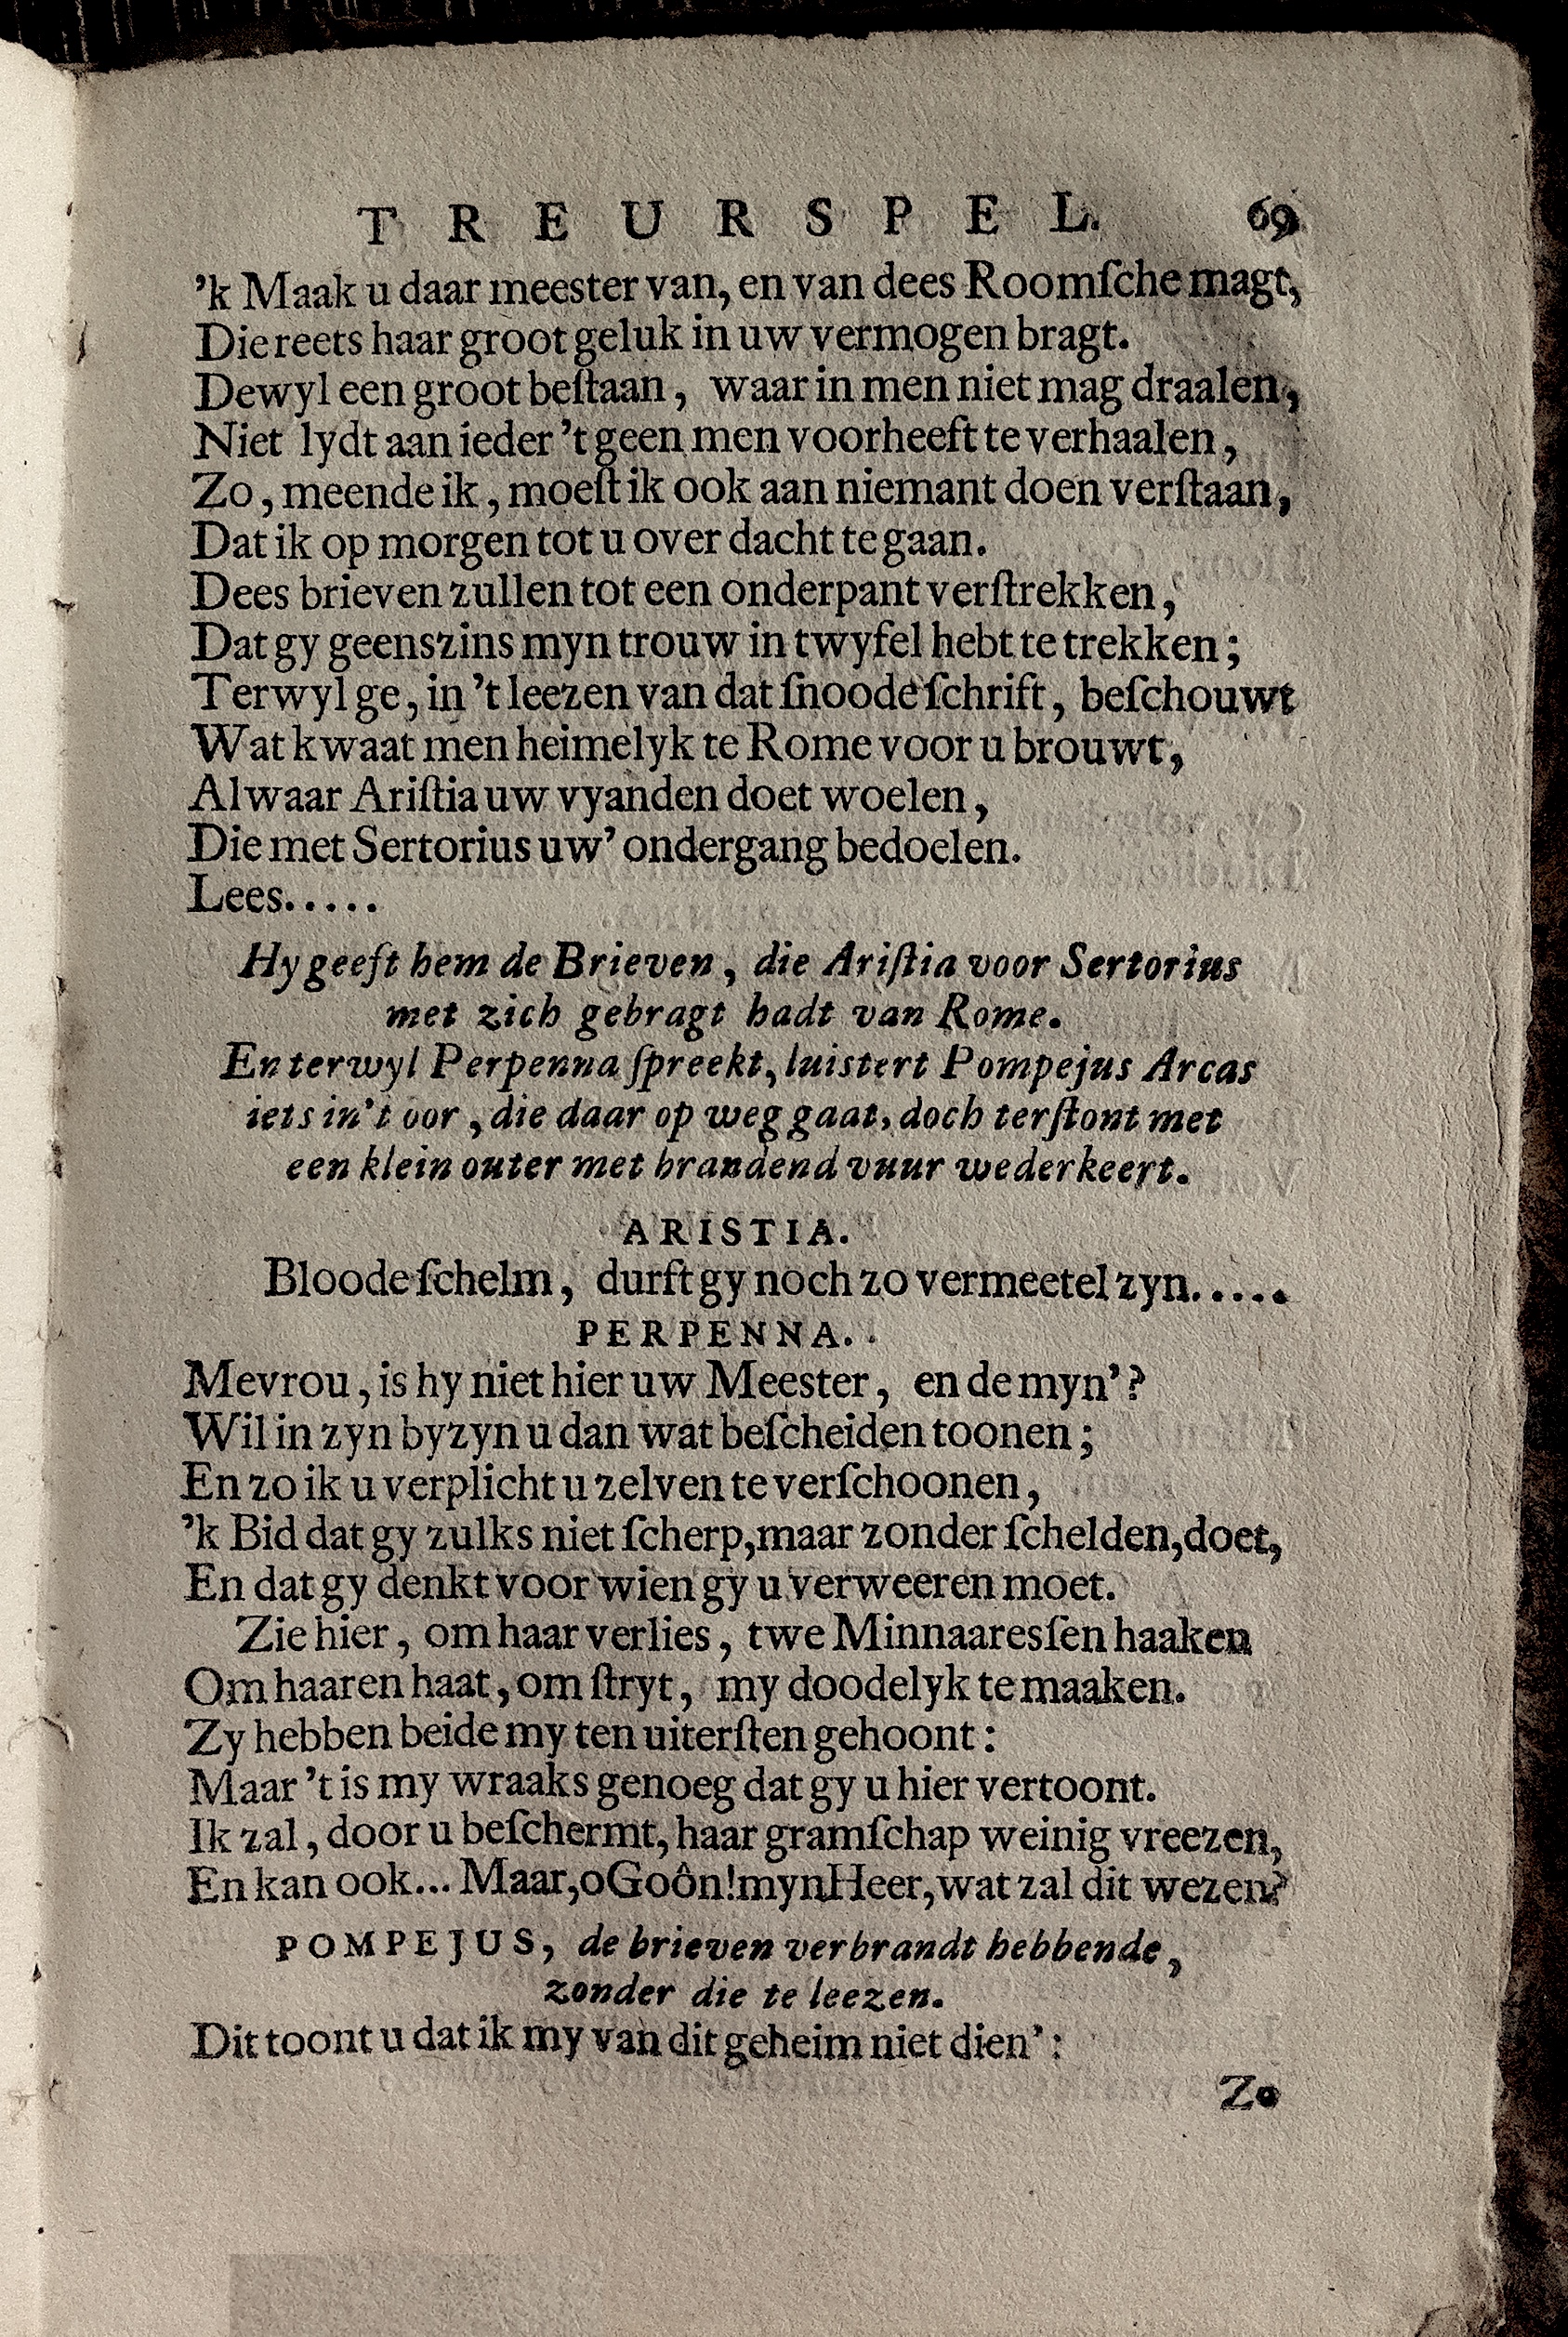 TREURSPEL. 69
'k Maak u daar meester van, en van dees Roomſche magt,
Die reets haar groot geluk in uw vermogen bragt.
Dewyl een groot beſtaan, waar in men niet mag draalen,
Niet lydt aan ieder 't geen men voorheeft te verhaalen,
Zo, meende ik, moeſt ik ook aan niemant doen verſtaan,
Dat ik op morgen tot u over dacht te gaan.
Dees brieven zullen tot een onderpant verſtrekken,
Dat gy geenszins myn trouw in twyfel hebt te trekken;
Terwyl ge, in 't leezen van dat ſnoode ſchrift, beſchouwt
Wat kwaat men heimelyk te Rome voor u brouwt,
Alwaar Ariſtia uw vyanden doet woelen,
Die met Sertorius uw' ondergang bedoelen.
Lees.....
Hy geeft hem de Brieven, die Ariſtia voor Sertorius
met zich gebragt hadt van Rome.
En terwyl Perpenna ſpreekt, luistert Pompejus Arcas
iets in't oor, die daar op weg gaat, doch terſtont met
een klein outer met brandend vuur wederkeert.
ARISTIA.
Bloode ſchelm, durft gy noch zo vermeetel zyn.....
PERPENNA.
Mevrou, is hy niet hier uw Meester, en de myn'?
Wil in zyn byzyn u dan wat beſcheiden toonen;
En zo ik u verplicht u zelven te verſchoonen,
'k Bid dat gy zulks niet ſcherp, maar zonder ſchelden, doet,
En dat gy denkt voor wien gy u verweeren moet.
Zie hier, om haar verlies, twe Minnaaresſen haaken
Om haaren haat, om ſtryt, my doodelyk te maaken.
Zy hebben beide my ten uiterſten gehoont:
Maar 't is my wraaks genoeg dat gy u hier vertoont.
Ik zal, door u beſchermt, haar gramſchap weinig vreezen,
En kan ook... Maar, o Goôn! myn Heer, wat zal dit wezen?
POMPEJUS, de brieven verbrandt hebbende,
zonder die te leezen.
Dit toont u dat ik my van dit geheim niet dien':
Zo